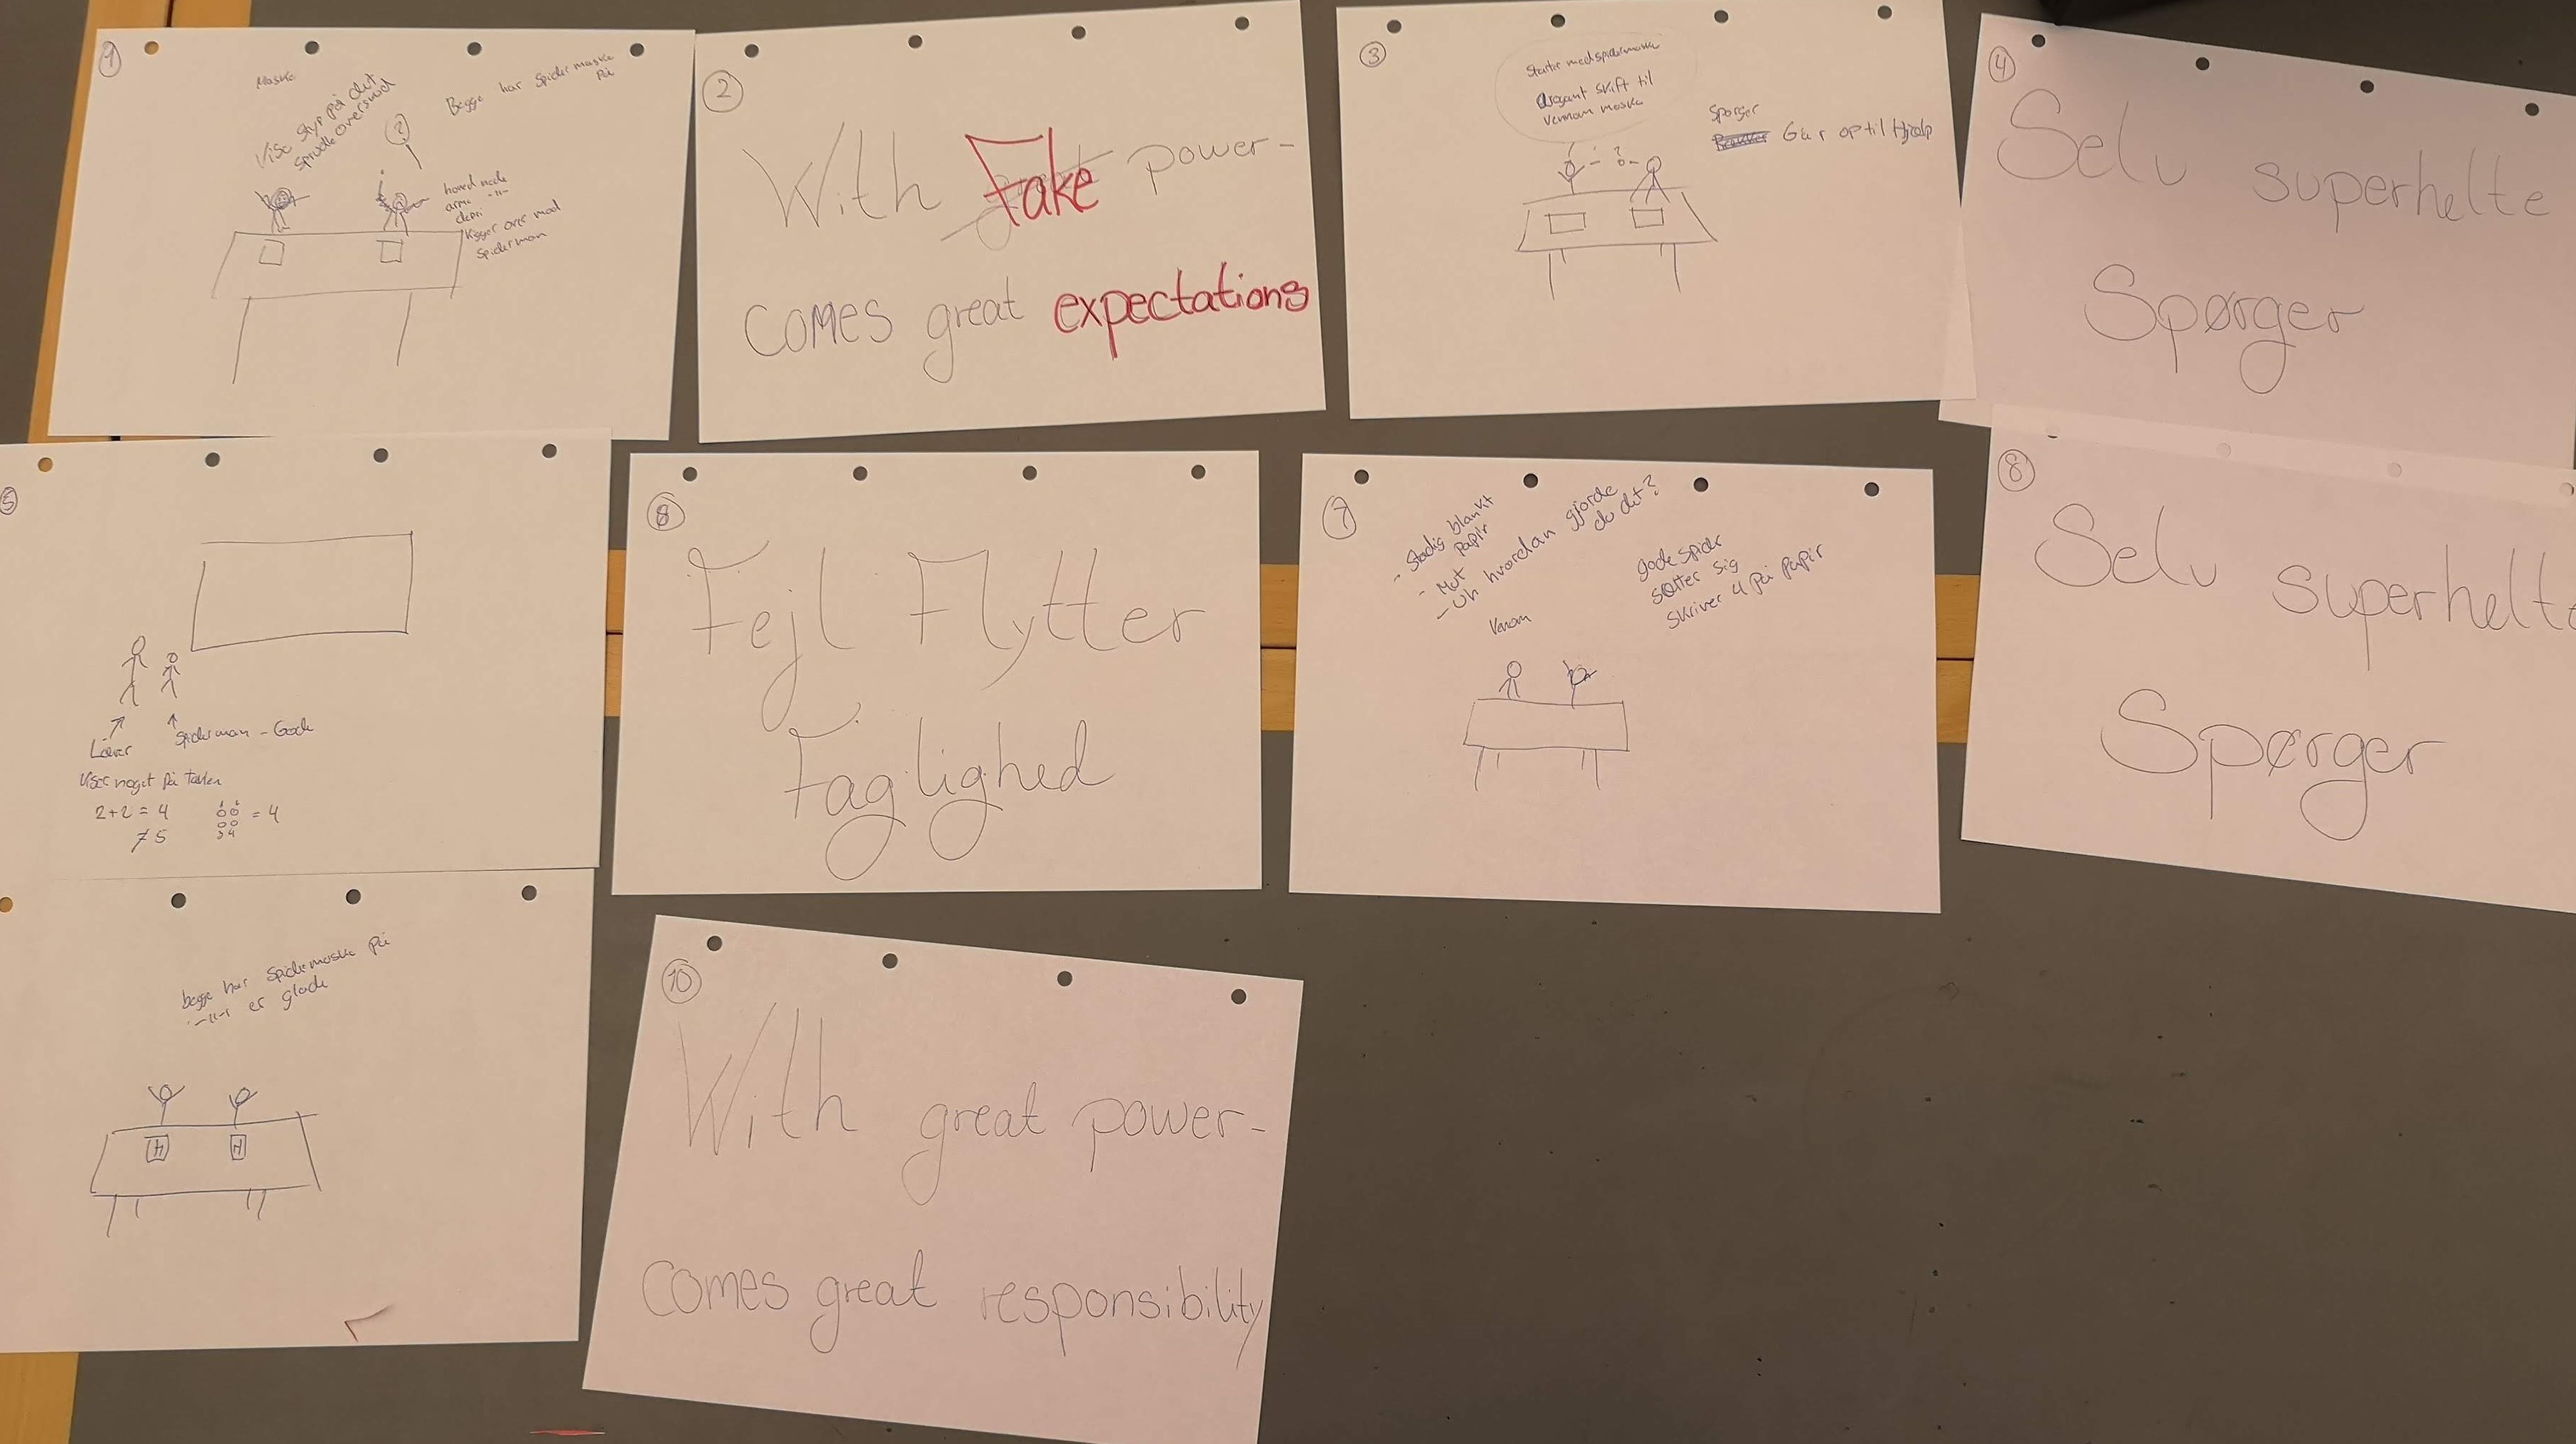 1
Maske
Vise styr på det
sprude overskud
Begge har Spidermaske
På
?
hoved nede
arme -"-
depri
Kigger over mod
Spiderman
2
With Fake power-
comes great expectations
3
Starter med spidermaske
arogant skift til
Vennom maske
Spørger
Går op til Hjælp
4
Selv superhelte
Spørger
5
Lærer
Spiderman - Gode
Viser noget på tavlen
2+2 = 4
≠ 5
1 2
3 4
= 4
6
Fejl Flytter
Faglighed
7
- Stadig blankt
Papir
- Mut
- Uh hvordan gjorde
du det?
Venom
gode spider
sætter sig
skriver 4 på papir
8
Selv superhelte
Spørger
begge har Spidermaske på
-"- er glade
4
4
10
With great power-
comes great responsibility